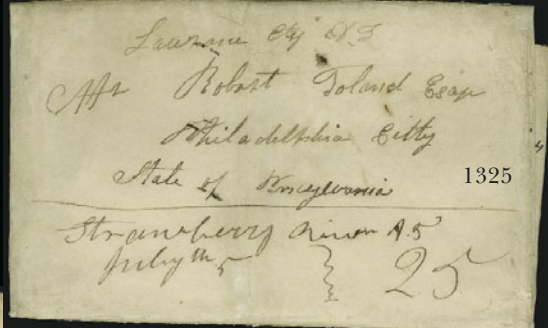 Lawrance Cty A.T
Mr Robert Toland Esqr
Philadelphia Citty
State of Pencylvania
1325
Strawberry River A.T
July th 5
25